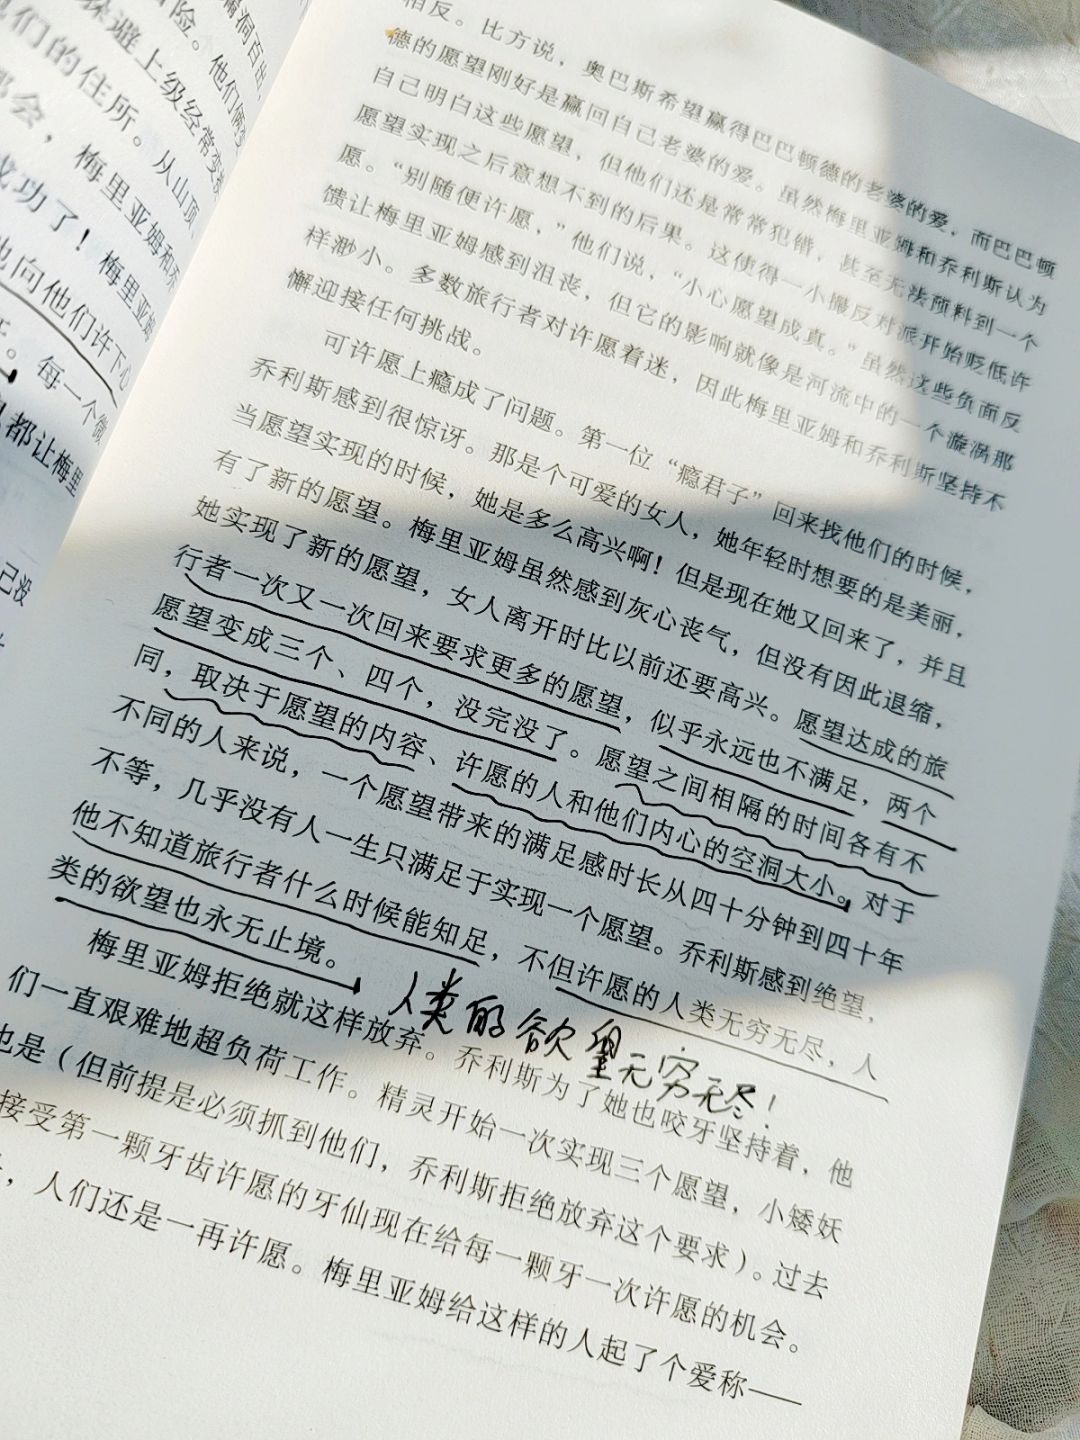 漏洞百出
险。他们俩
躲避上级经常变换
们的住所。从山顶
都会,梅里亚姆和乔
成功了!梅里亚姆
也向他们许下心
。每一个微
都让梅里
己没
相反。比方说,奥巴斯希望赢得巴巴顿德的老婆的爱,而巴巴顿
德的愿望刚好是赢回自己老婆的爱。虽然梅里亚姆和乔利斯认为
自己明白这些愿望,但他们还是常常犯错,甚至无法预料到一个
愿望实现之后意想不到的后果。这使得一小撮反对派开始贬低许
愿。“别随便许愿,”他们说,“小心愿望成真。”虽然这些负面反
馈让梅里亚姆感到沮丧,但它的影响就像是河流中的一个漩涡那
样渺小。多数旅行者对许愿着迷,因此梅里亚姆和乔利斯坚持不
懈迎接任何挑战。
可许愿上瘾成了问题。第一位“瘾君子”回来找他们的时候,
乔利斯感到很惊讶。那是个可爱的女人,她年轻时想要的是美丽,
当愿望实现的时候,她是多么高兴啊!但是现在她又回来了,并且
有了新的愿望。梅里亚姆虽然感到灰心丧气,但没有因此退缩,
她实现了新的愿望,女人离开时比以前还要高兴。愿望达成的旅
行者一次又一次回来要求更多的愿望,似乎永远也不满足,两个
愿望变成三个、四个,没完没了。愿望之间相隔的时间各有不
同,取决于愿望的内容、许愿的人和他们内心的空洞大小。对于
不同的人来说,一个愿望带来的满足感时长从四十分钟到四十年
不等,几乎没有人一生只满足于实现一个愿望。乔利斯感到绝望,
他不知道旅行者什么时候能知足,不但许愿的人类无穷无尽,人
类的欲望也永无止境。
人类的欲望无穷无尽!
梅里亚姆拒绝就这样放弃。乔利斯为了她也咬牙坚持着,他
们一直艰难地超负荷工作。精灵开始一次实现三个愿望,小矮妖
也是(但前提是必须抓到他们,乔利斯拒绝放弃这个要求)。过去
接受第一颗牙齿许愿的牙仙现在给每一颗牙一次许愿的机会。
,人们还是一再许愿。梅里亚姆给这样的人起了个爱称——